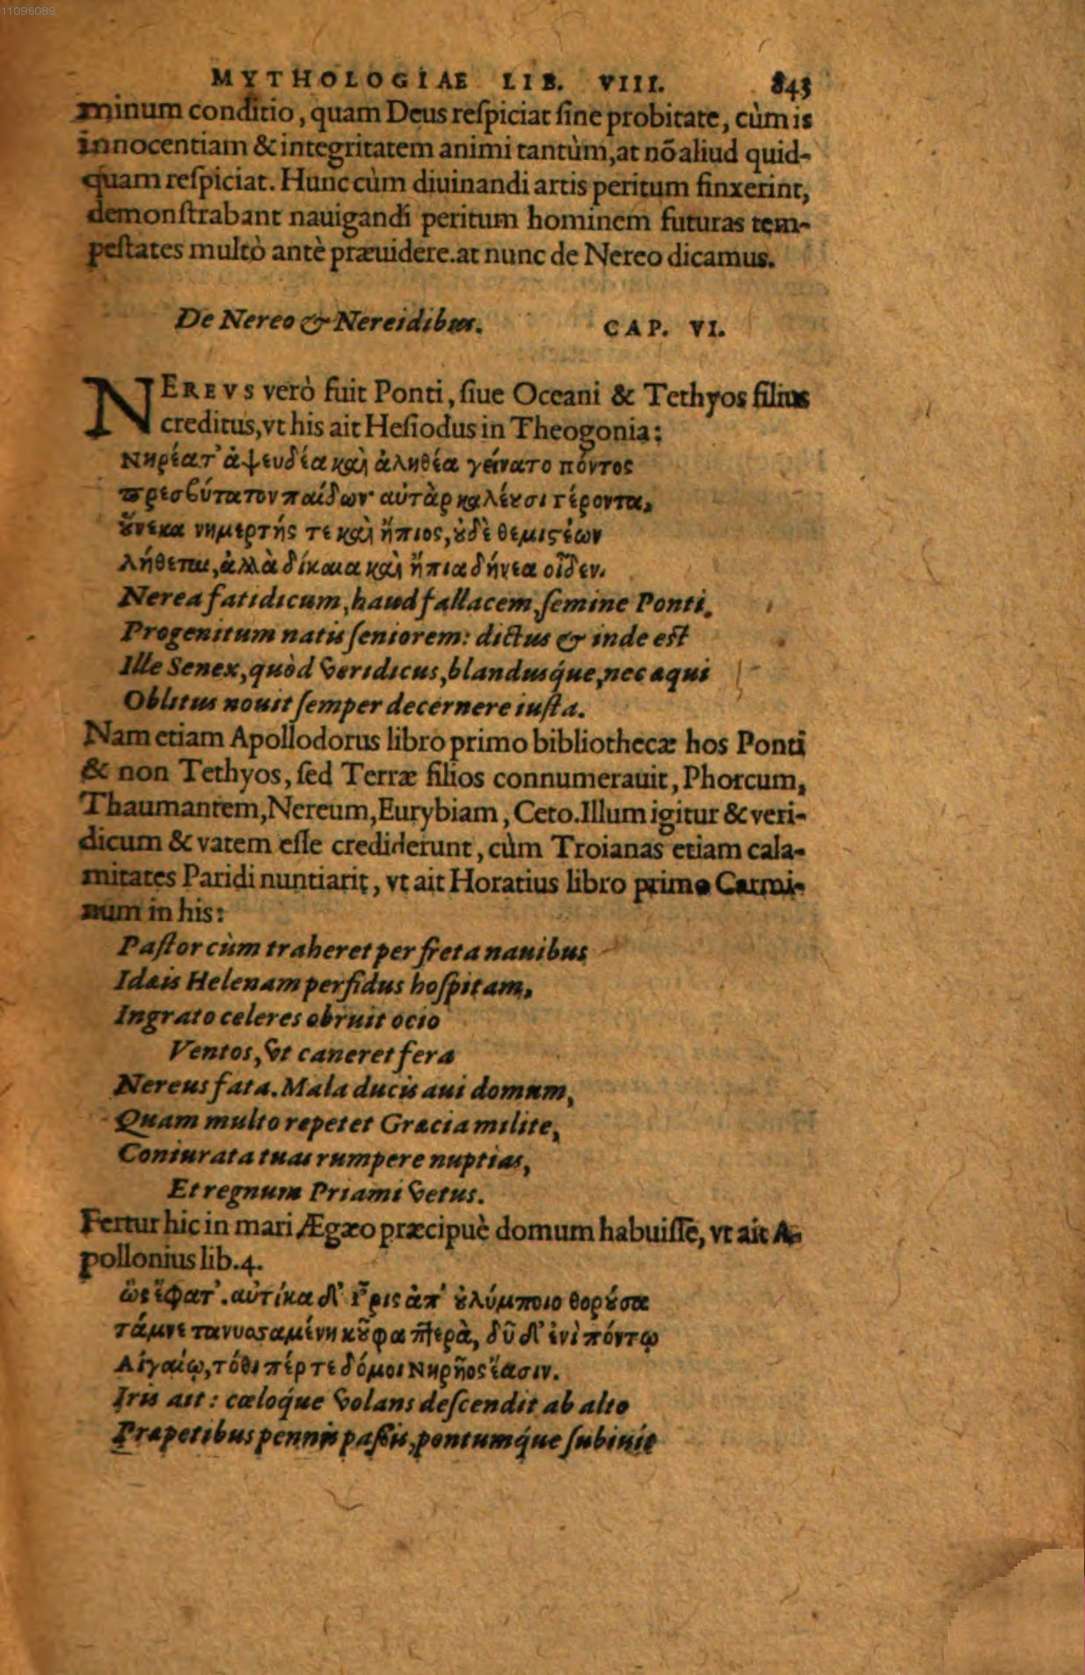 11096089
MYTHOLOGIAE LIB. VIII. 843
minum conditio, quam Deus reſpiciat ſine probitate, cùm is
innocentiam & integritatem animi tantùm, at nõ aliud quid-
quam reſpiciat. Hunc cùm diuinandi artis peritum finxerint,
demonſtrabant nauigandi peritum hominem futuras tem-
peſtates multò antè præuidere. at nunc de Nereo dicamus.
De Nereo & Nereidibus. CAP. VI.
NEREVS verò fuit Ponti, ſiue Oceani & Tethyos filius
creditus, vt his ait Heſiodus in Theogonia:
Νηρέα τ' ἀψευδέα καὶ ἀληθέα γείνατο πόντος
πρεσβύτατον παίδων· αὐτὰρ καλέȣσι γέροντα,
ȣ̓́νεκα νημερτής τε καὶ ἤπιος, ȣ̓δὲ θεμιϛέων
λήθεται, ἀλλὰ δίκαια καὶ ἤπια δήνεα οἶδεν.
Nerea fatidicum, haud fallacem, ſemine Ponti.
Progenitum natu ſeniorem: dictus & inde eſt
Ille Senex, quòd veridicus, blanduſq́ue, nec æqui
Oblitus nouit ſemper decernere iuſta.
Nam etiam Apollodorus libro primo bibliothecæ hos Ponti
& non Tethyos, ſed Terræ filios connumerauit, Phorcum,
Thaumantem, Nereum, Eurybiam, Ceto. Illum igitur & veri-
dicum & vatem eſſe crediderunt, cùm Troianas etiam cala-
mitates Paridi nuntiarit, vt ait Horatius libro primo Carmi-
num in his:
Paſtor cùm traheret per freta nauibus
Idæis Helenam perfidus hoſpitam,
Ingrato celeres obruit ocio
Ventos, vt caneret fera
Nereus fata. Mala ducis aui domum,
Quam multo repetet Græcia milite,
Coniurata tuas rumpere nuptias,
Et regnum Priami vetus.
Fertur hic in mari Ægæo præcipuè domum habuiſſe, vt ait A-
pollonius lib. 4.
ὣς ἔφατ'. αὐτίκα δ' ἶρις ἀπ' ȣ̓λύμποιο θορȣ͂σα
τάμνε τανυσσαμένη κȣ͂φα πτερὰ, δῦ δ' ἐνὶ πόντῳ
Αἰγαίῳ, τόθι πέρ τε δόμοι Νηρῆος ἔασιν.
Iris ait: cœloq́ue volans deſcendit ab alto
Præpetibus pennis paſſis, pontumq́ue ſubiuit